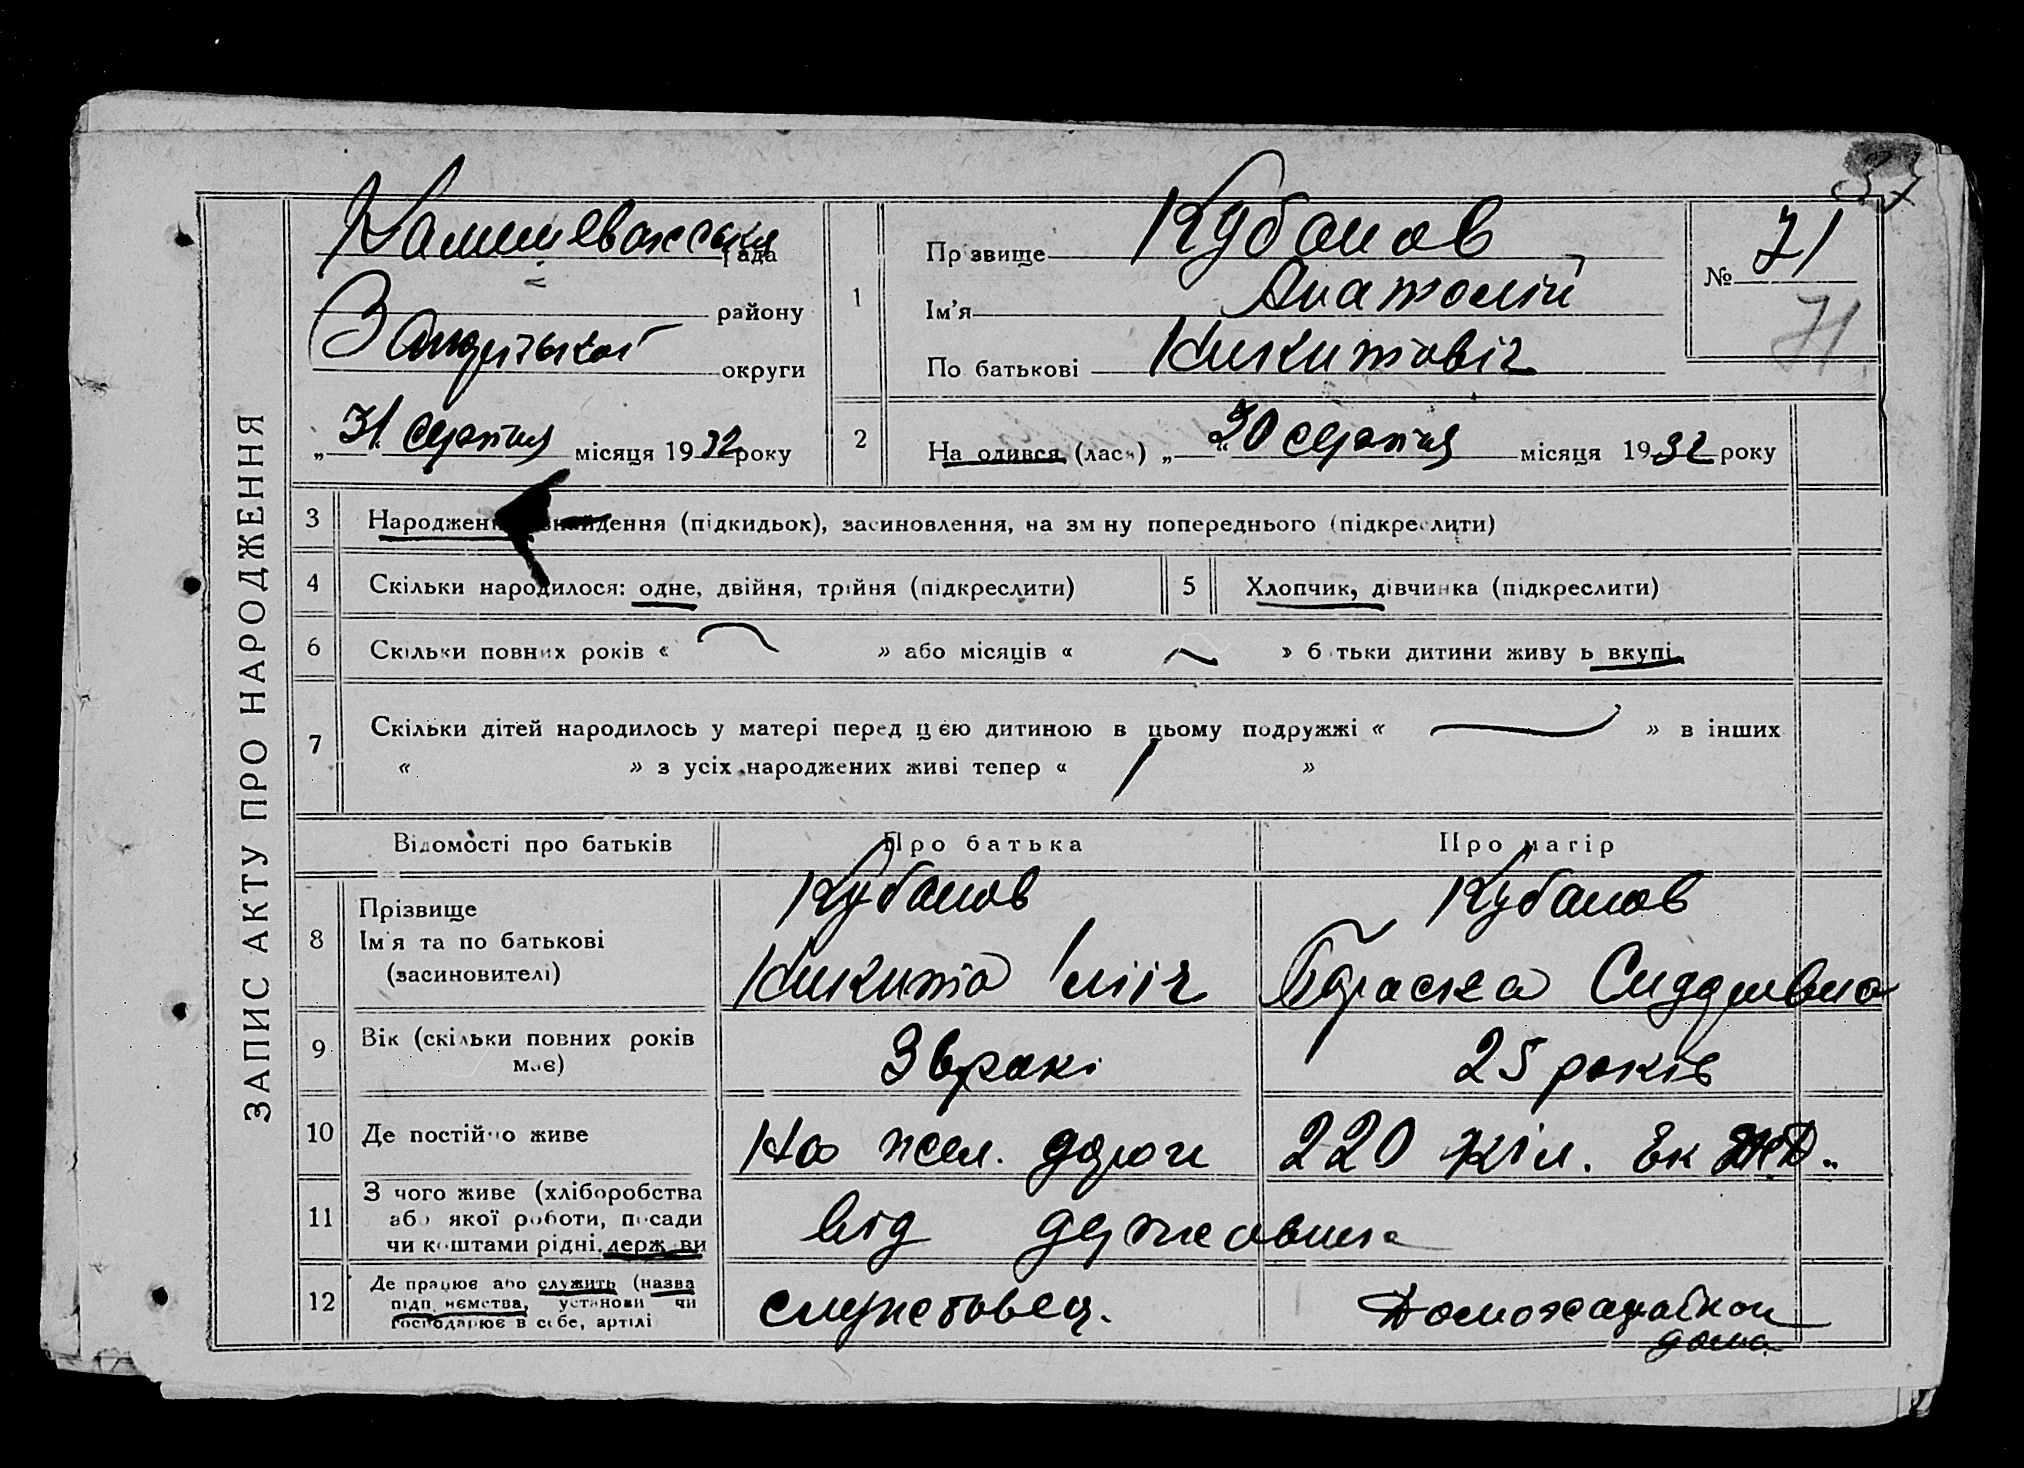 37
ЗАПИС АКТУ ПРО НАРОДЖЕННЯ
рада
району
округи
„31 серпня місяця 1932 року
1
Прізвище Кубанов
Ім'я Анатолій
По батькові Никитовіч
№ 71
71
2
Народився (лась) „30 серпня місяця 1932 року
3 Народження, знайдення (підкидьок), засиновлення, на зміну попереднього (підкреслити)
4 Скільки народилося: одне, двійня, трійня (підкреслити)
5 Хлопчик, дівчинка (підкреслити)
6 Скільки повних років « » або місяців « » батьки дитини живуть вкупі
7 Скільки дітей народилось у матері перед цією дитиною в цьому подружжі « » в інших
« » з усіх народжених живі тепер « »
Відомості про батьків Про батька Про матір
8 Прізвище Кубанов Кубанов
Ім'я та по батькові Никита Іліч Параска
(засиновителі)
9 Вік (скільки повних років має) 25 років
10 Де постійно живе На жел. дороги 220 кіл. Ек ЖД.
11 З чого живе (хліборобства
або якої роботи, посади від
чи коштами рідні, держави
12 Де працює або служить (назва
підприємства, установи чи службовец.
господарює в себе, артілі
дома